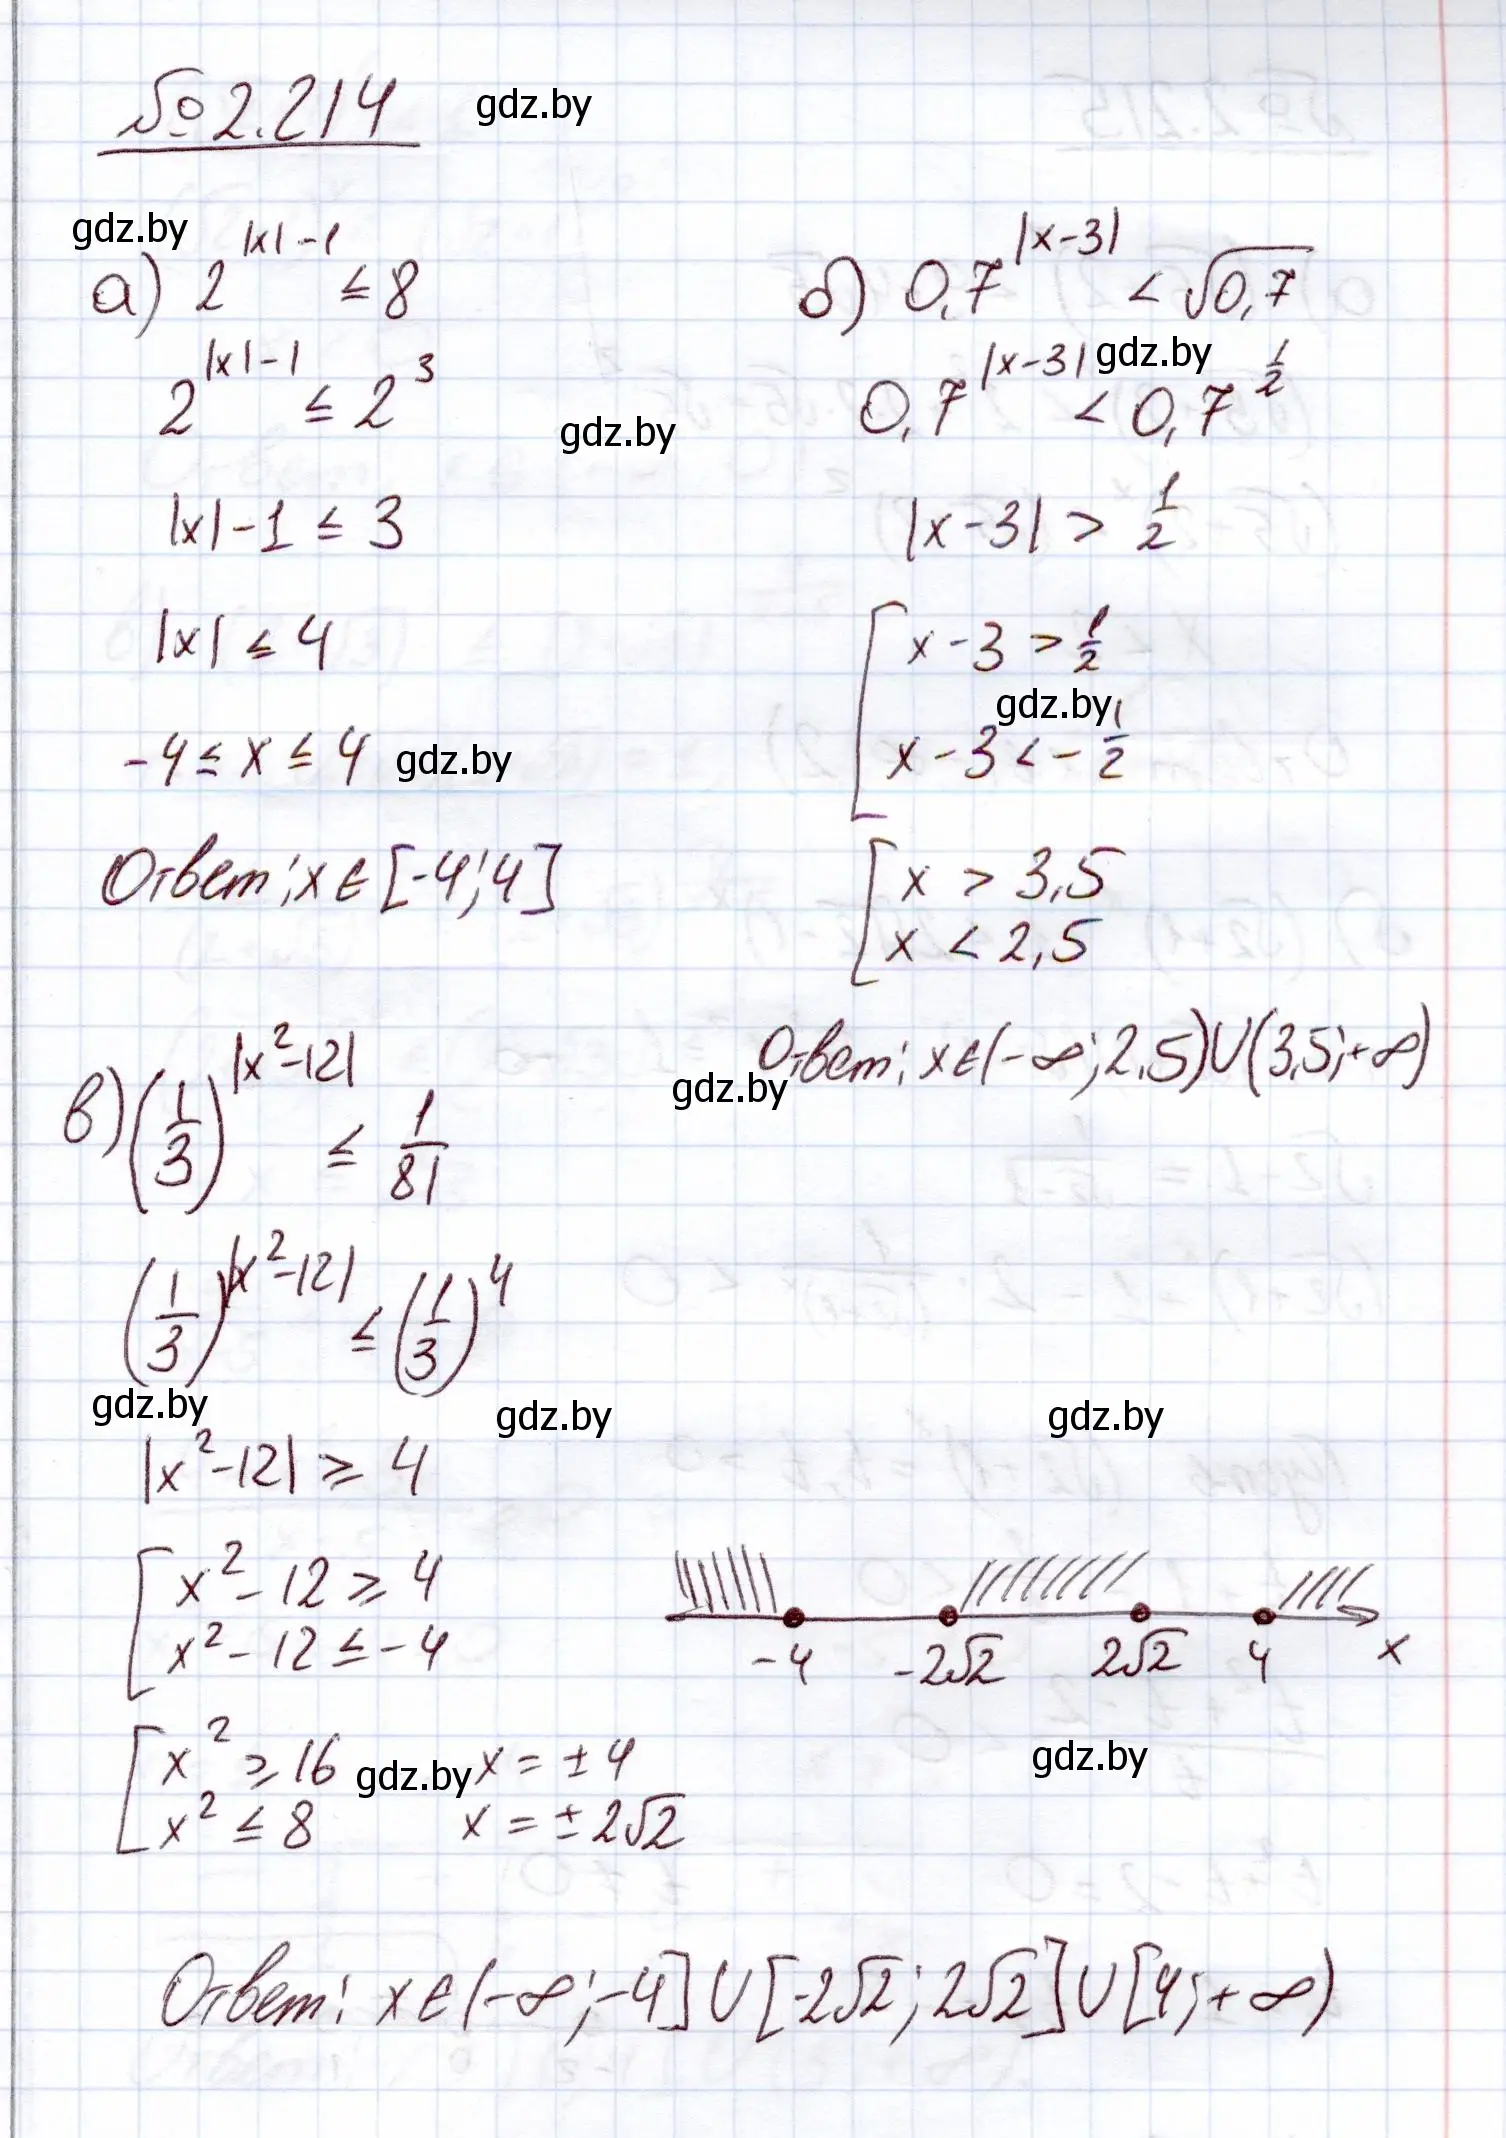 № 2.214
gdz.by
gdz.by
а) 2^{|x|-1} ≤ 8
2^{|x|-1} ≤ 2^3
gdz.by
|x|-1 ≤ 3
|x| ≤ 4
-4 ≤ x ≤ 4
gdz.by
Ответ: x ∈ [-4; 4]
б) 0,7^{|x-3|} < √0,7
gdz.by
0,7^{|x-3|} < 0,7^{1/2}
|x-3| > 1/2
[ x-3 > 1/2
gdz.by
x-3 < -1/2
[ x > 3,5
x < 2,5
Ответ: x ∈ (-∞; 2,5) ∪ (3,5; +∞)
gdz.by
в) (1/3)^{|x²-12|} ≤ 1/81
(1/3)^{|x²-12|} ≤ (1/3)^4
gdz.by
gdz.by
gdz.by
|x²-12| ≥ 4
[ x²-12 ≥ 4
x²-12 ≤ -4
-4 -2√2 2√2 4 x
[ x² ≥ 16 gdz.by x = ±4
x² ≤ 8 x = ±2√2
gdz.by
Ответ: x ∈ (-∞; -4] ∪ [-2√2; 2√2] ∪ [4; +∞)